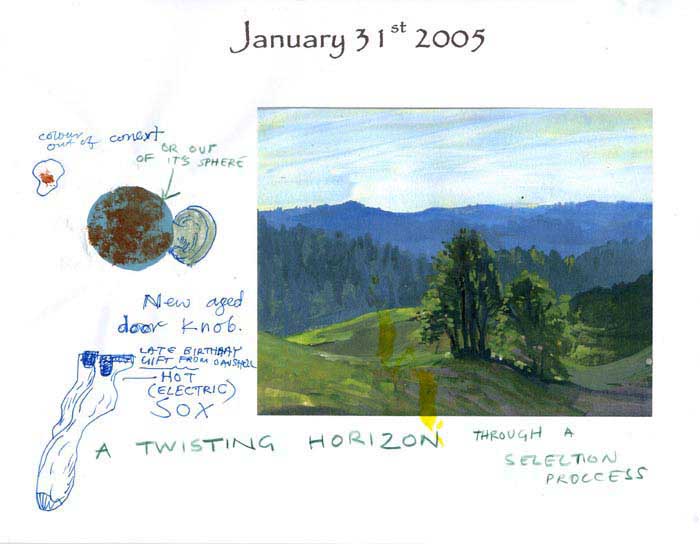 January 31st 2005
colour
out of conext
OR OUT
OF IT'S SPHERE
New aged
door knob.
LATE BIRTHDAY
GIFT FROM
HOT
(ELECTRIC)
SOX
A TWISTING HORIZON THROUGH A
SELECTION
PROCCESS